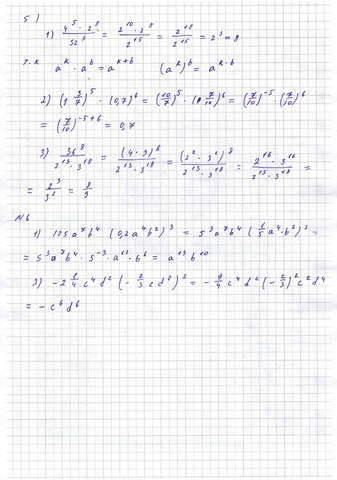 5)
1) (4^5 · 2^8)/(32^3) = (2^10 · 2^8)/(2^15) = 2^18/2^15 = 2^3 = 8
т.к a^k · a^b = a^(k+b) (a^k)^b = a^(k·b)
2) (1 3/7)^5 · (0,7)^6 = (10/7)^5 · (7/10)^6 = (7/10)^-5 · (7/10)^6
= (7/10)^(-5+6) = 0,7
3) 36^8/(2^13 · 3^18) = (4·9)^8/(2^13 · 3^18) = (2^2 · 3^2)^8/(2^13 · 3^18) = (2^16 · 3^16)/(2^13 · 3^18) =
= 2^3/3^2 = 8/9
N6
1) 125 a^7 b^4 (0,2 a^4 b^2)^3 = 5^3 a^7 b^4 (1/5 a^4 · b^2)^3 =
= 5^3 a^7 b^4 · 5^-3 · a^12 · b^6 = a^19 b^10
2) -2 1/4 c^4 d^2 (-2/3 c d^2)^2 = -9/4 c^4 d^2 (-2/3)^2 c^2 d^4
= -c^6 d^6